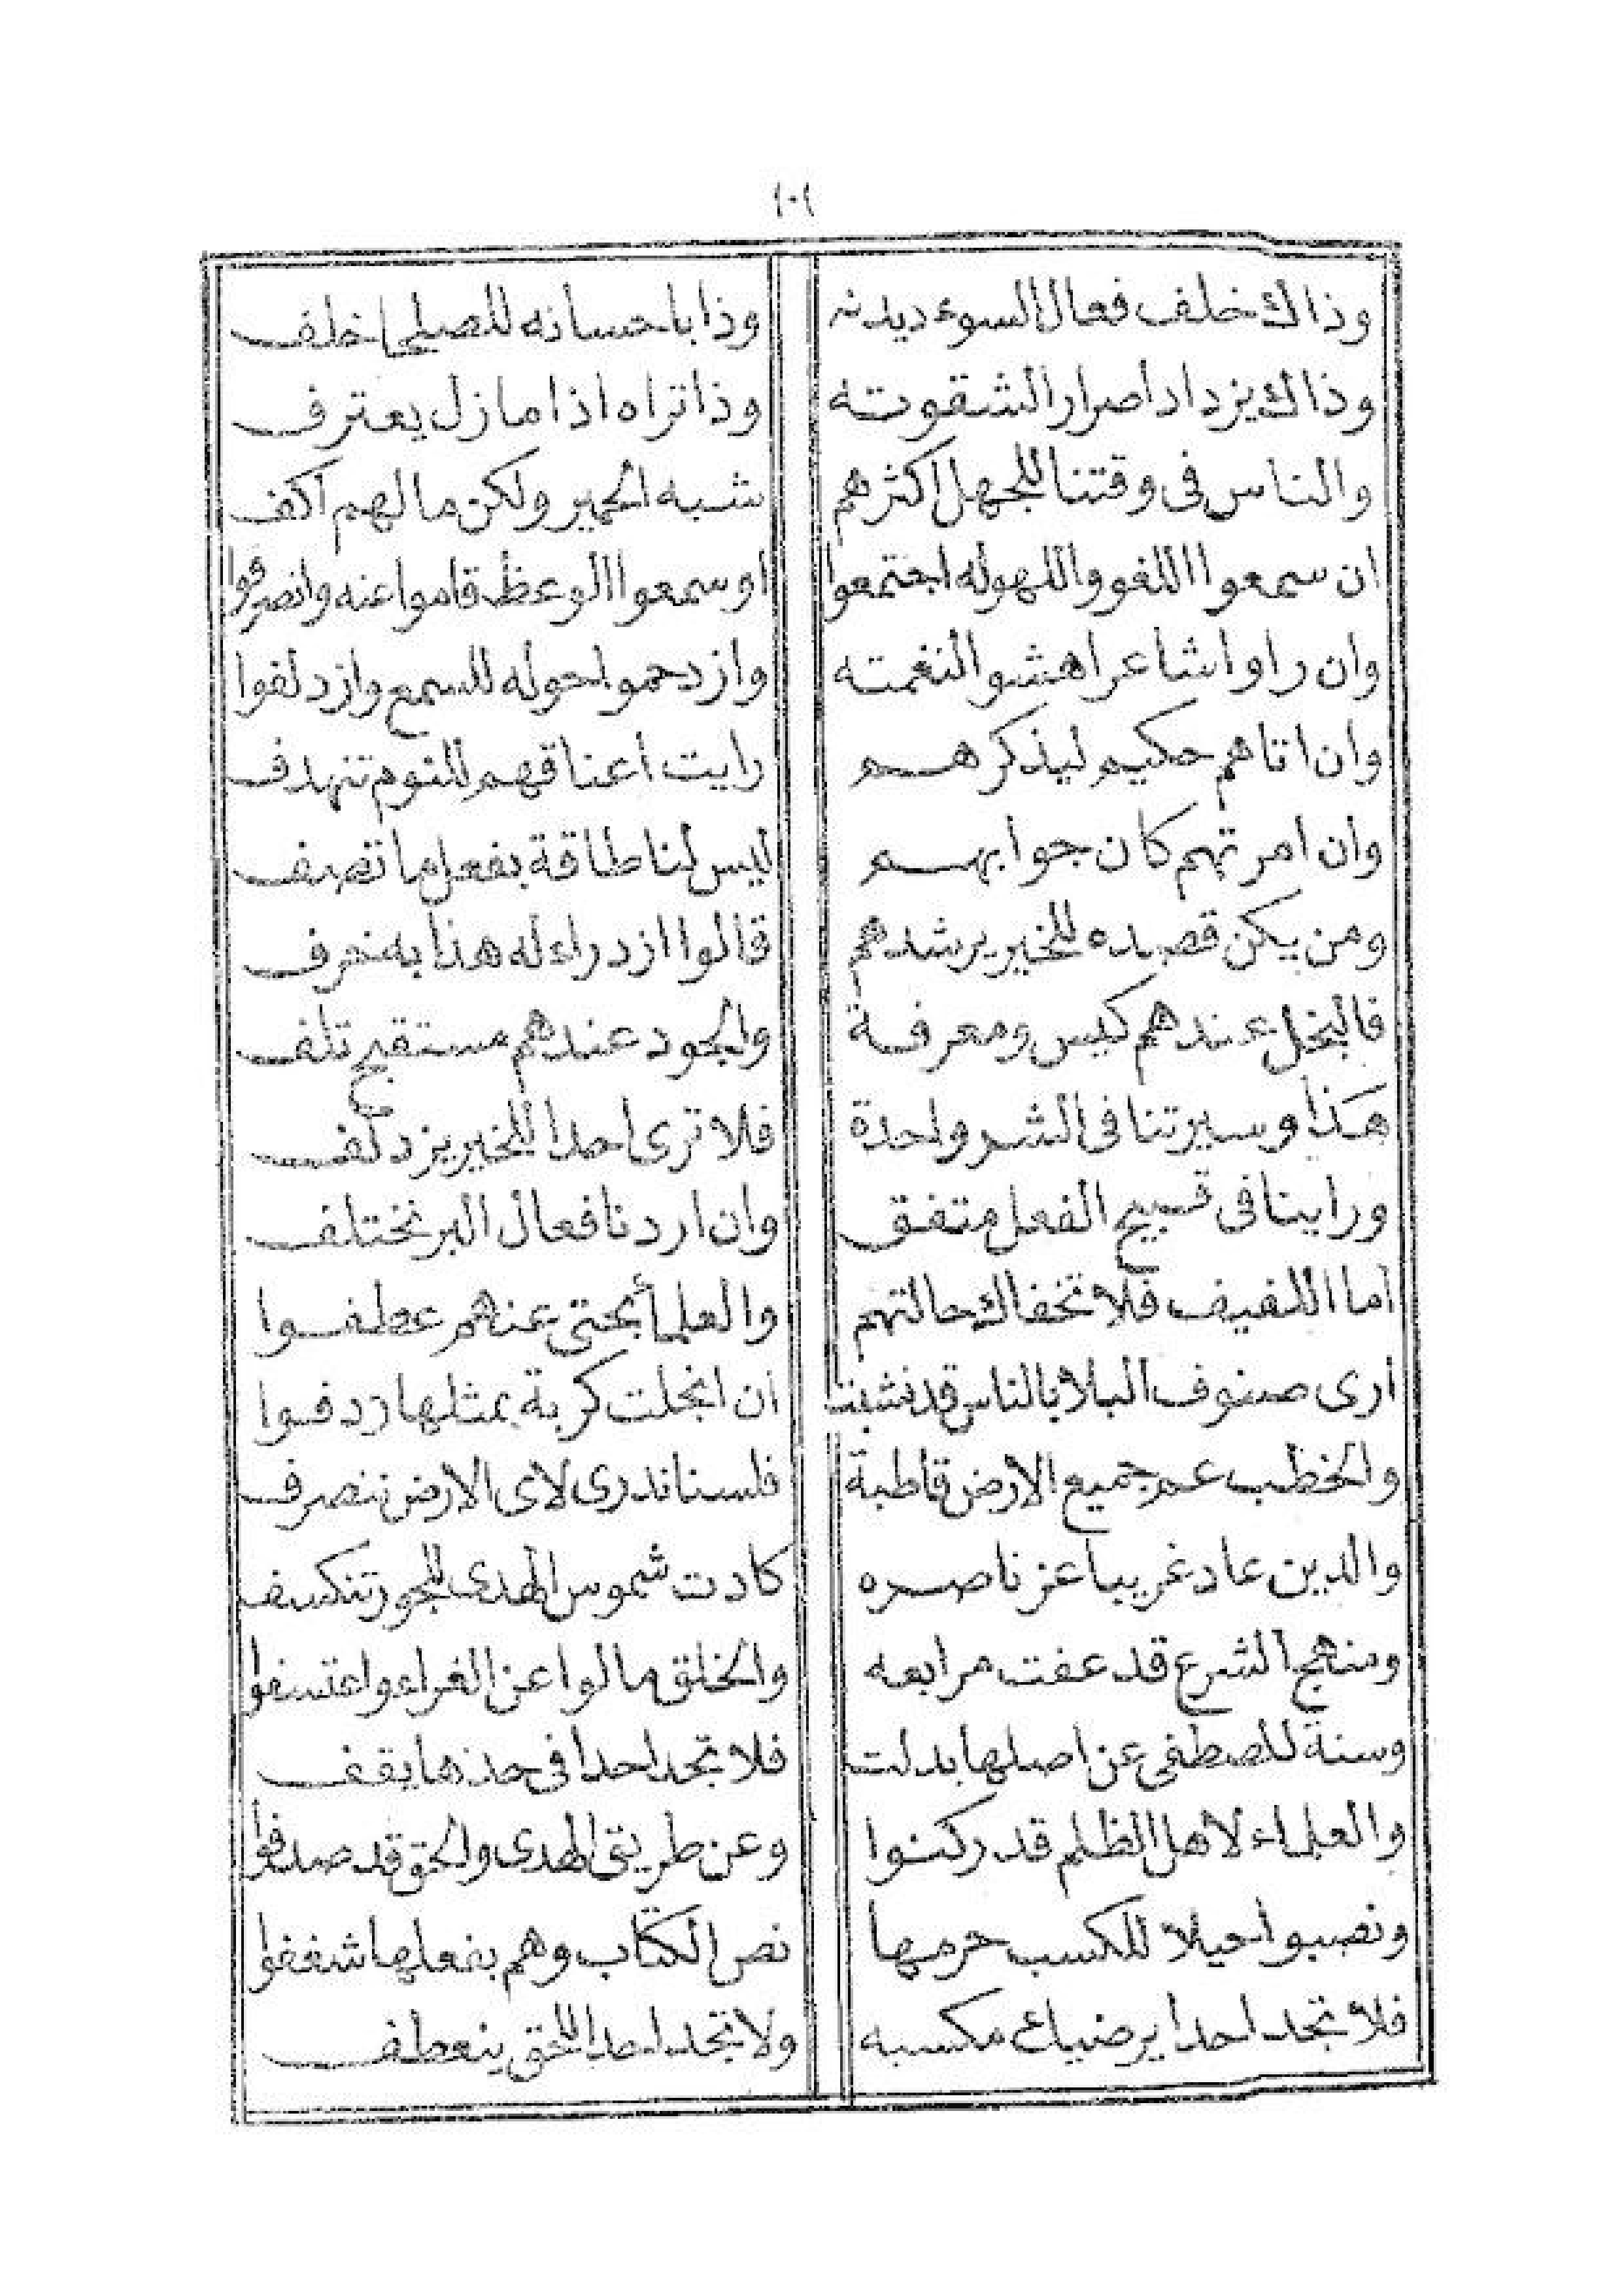 ١٠١
وذاك خلف فعال السوء ديدنه وذا باحسانه للصلحا خلف
وذاك يزداد اصرارا لشقوته وذا تراه اذا ما زل يعترف
والناس فى وقتنا للجهل اكثرهم شبه الحمير ولكن ما لهم اكف
ان سمعوا اللغو واللهو له اجتمعوا او سمعوا الوعظ قاموا عنه وانصرفوا
وان راوا شاعرا هشوا لنغمته وازدحموا حوله للسمع وازدلفوا
وان اتاهم حكيم ليذكرهم رايت أعناقهم للنوم تنهدف
وان امرتهم كان جوابهم ليس لنا طاقة بفعل ما تصف
ومن يكن قصده للخير يرشدهم قالوا ازدراء له هذا به خرف
فالبخل عندهم كيس ومعرفة والجود عندهم مستقبح تلف
هذا وسيرتنا فى الشر واحدة فلا ترى احدا للخير يزدلف
وراينا فى قبيح الفعل متفق وان اردنا فعال البر نختلف
اما اللفيف فلا تخفاك حالتهم والعلمأ حتى عنهم عطفوا
ارى صنوف البلا بالناس قد نشبت ان انجلت كربة بمثلها ردفوا
والخطب عم جميع الارض قاطبة فلسنا ندرى لاى الارض ننصرف
والدين عاد غريبا عز ناصره كادت شموس الهدى للجور تنكسف
ومنهج الشرع قد عفت مرابعه والخلق مالوا عن الغراء واعتسفوا
وسنة المصطفى عن اصلها بدلت فلا تجد احدا فى حذها يقف
والعلماء لاهل الظلم قد ركنوا وعن طريق الهدى والحق قد صدفوا
ونصبوا حيلا للكسب حرمها نص الكتاب وهم بفعلها شغفوا
فلا تجد احدا يرضيك مكسبه ولا تجد احدا للحق ينعطف